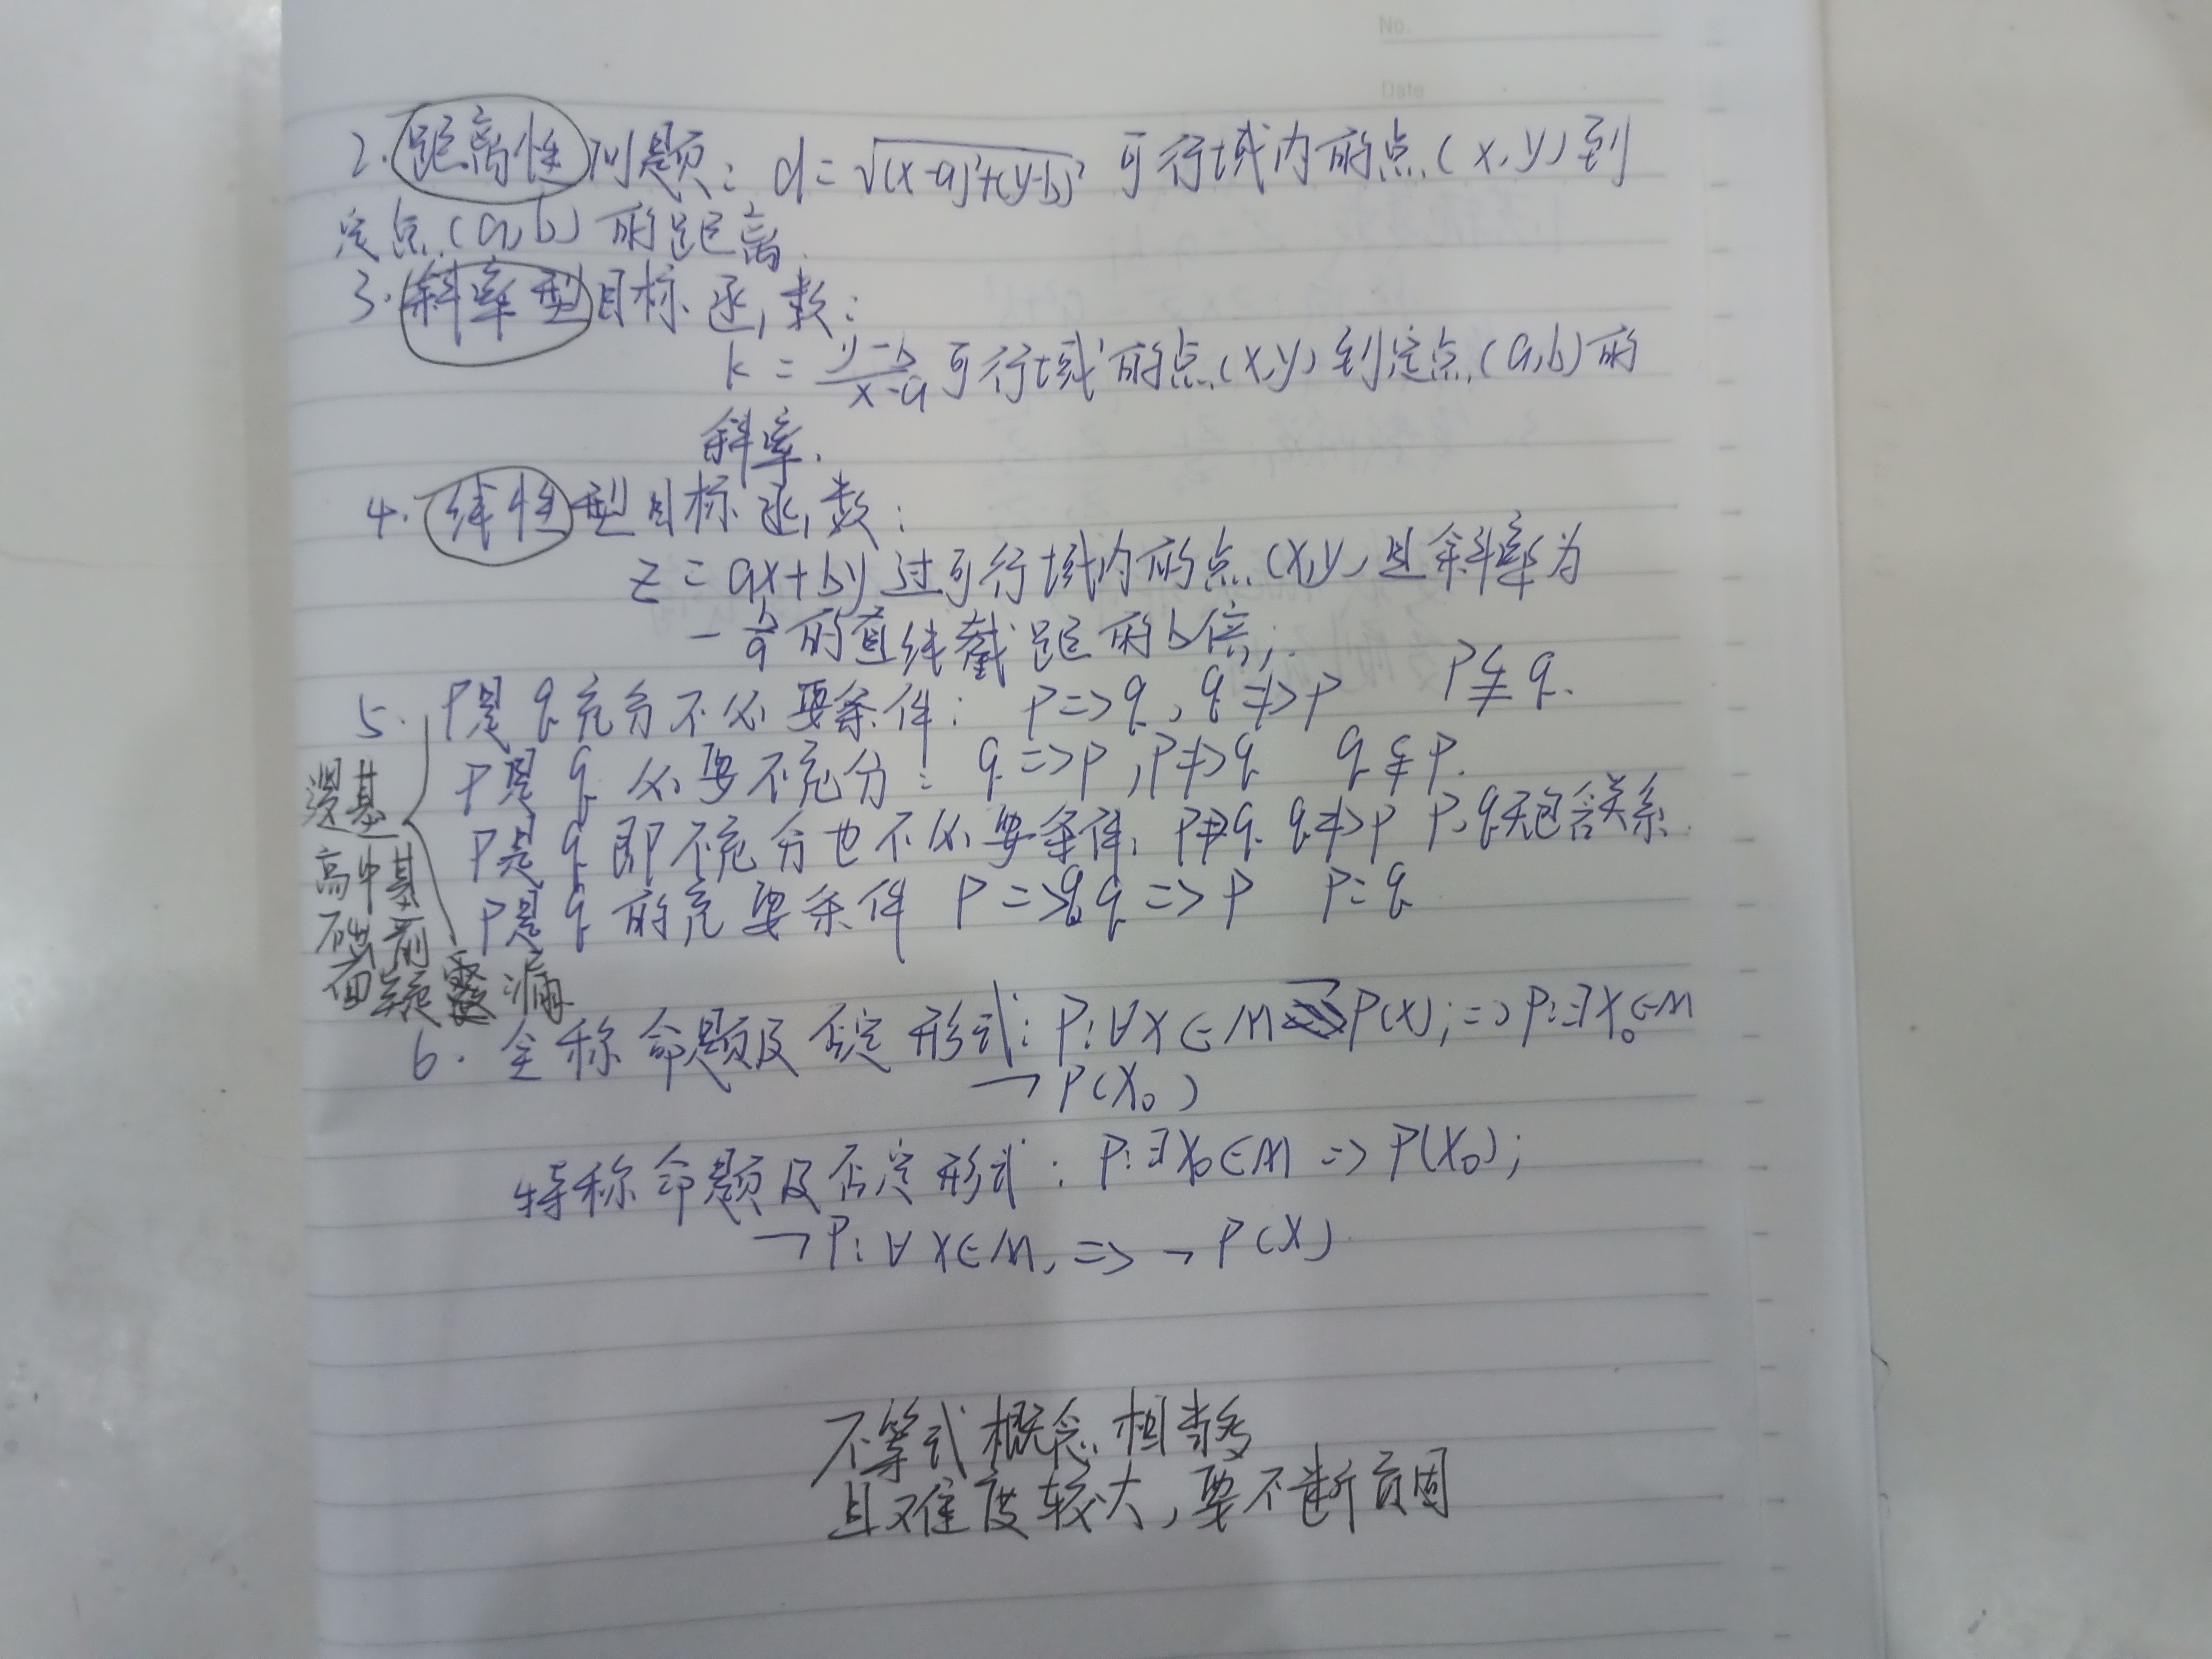 No.
Date
2.距离性问题：d=√(x-a)²+(y-b)² 可行域内的点(x,y)到
定点(a,b)的距离.
3.斜率型目标函数：
k = y-b/x-a 可行域的点(x,y)到定点(a,b)的
斜率.
4.线性型目标函数：
z = ax+by 过可行域内的点(x,y)且斜率为
-b/a的直线截距的b倍;.
5. P是q充分不必要条件： P=>q, q≠>P P⫋q.
P是q必要不充分： q=>P, P≠>q q⫋P.
P是q即不充分也不必要条件. P≠>q. q≠>P P、q无包含关系.
P是q的充要条件 P=>q, q=>P P=q
基
高中基
础 前
面
6. 全称命题及否定形式：P:∀x∈M P(x);=>P:∃x₀∈M
¬P(x₀)
特称命题及否定形式：P:∃x₀∈M => P(x₀);
¬P:∀x∈M, => ¬P(x)
不等式概念相当多
且难度较大,要不断巩固